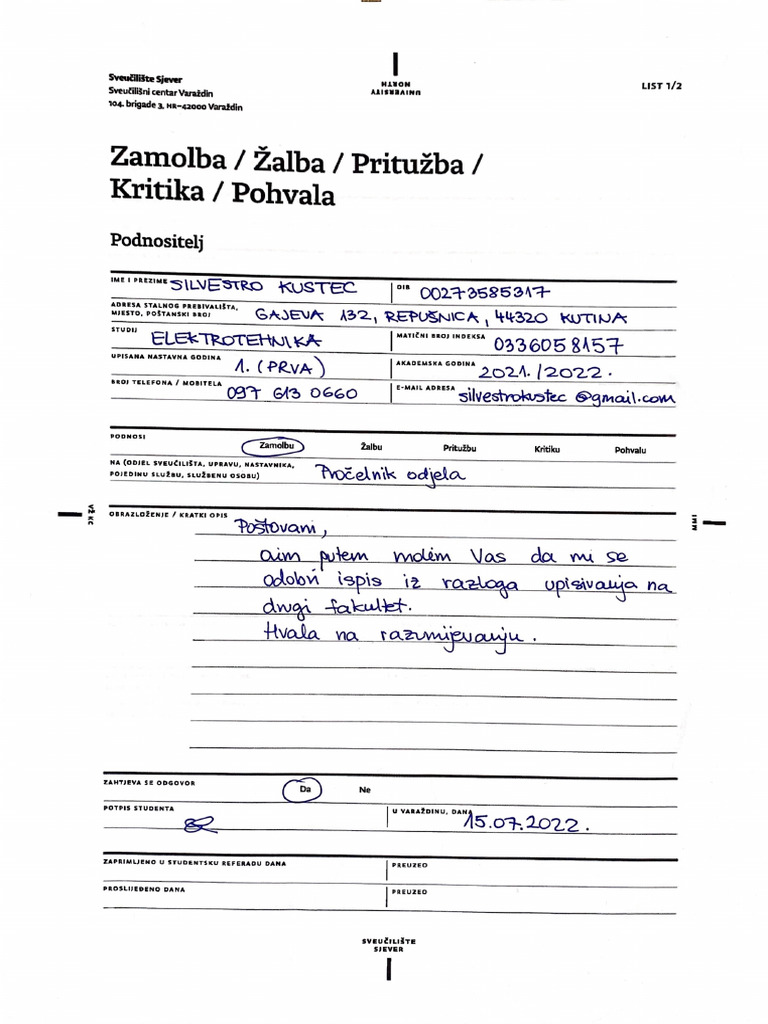 Sveučilište Sjever
Sveučilišni centar Varaždin
104. brigade 3, HR–42000 Varaždin
UNIVERSITY
NORTH
LIST 1/2
Zamolba / Žalba / Pritužba /
Kritika / Pohvala
Podnositelj
IME I PREZIME SILVESTRO KUSTEC OIB 00273585317
ADRESA STALNOG PREBIVALIŠTA,
MJESTO, POŠTANSKI BROJ GAJEVA 132, REPUŠNICA, 44320 KUTINA
STUDIJ ELEKTROTEHNIKA MATIČNI BROJ INDEKSA 0336058157
UPISANA NASTAVNA GODINA 1. (PRVA) AKADEMSKA GODINA 2021./2022.
BROJ TELEFONA / MOBITELA 097 613 0660 E-MAIL ADRESA silvestrokustec@gmail.com
PODNOSI Zamolbu Žalbu Pritužbu Kritiku Pohvalu
NA (ODJEL SVEUČILIŠTA, UPRAVU, NASTAVNIKA,
POJEDINU SLUŽBU, SLUŽBENU OSOBU) Pročelnik odjela
VŽ KC
MMI
OBRAZLOŽENJE / KRATKI OPIS
Poštovani,
ovim putem molim Vas da mi se
odobri ispis iz razloga upisivanja na
drugi fakultet.
Hvala na razumijevanju.
ZAHTJEVA SE ODGOVOR Da Ne
POTPIS STUDENTA U VARAŽDINU, DANA 15.07.2022.
ZAPRIMLJENO U STUDENTSKU REFERADU DANA PREUZEO
PROSLIJEĐENO DANA PREUZEO
SVEUČILIŠTE
SJEVER